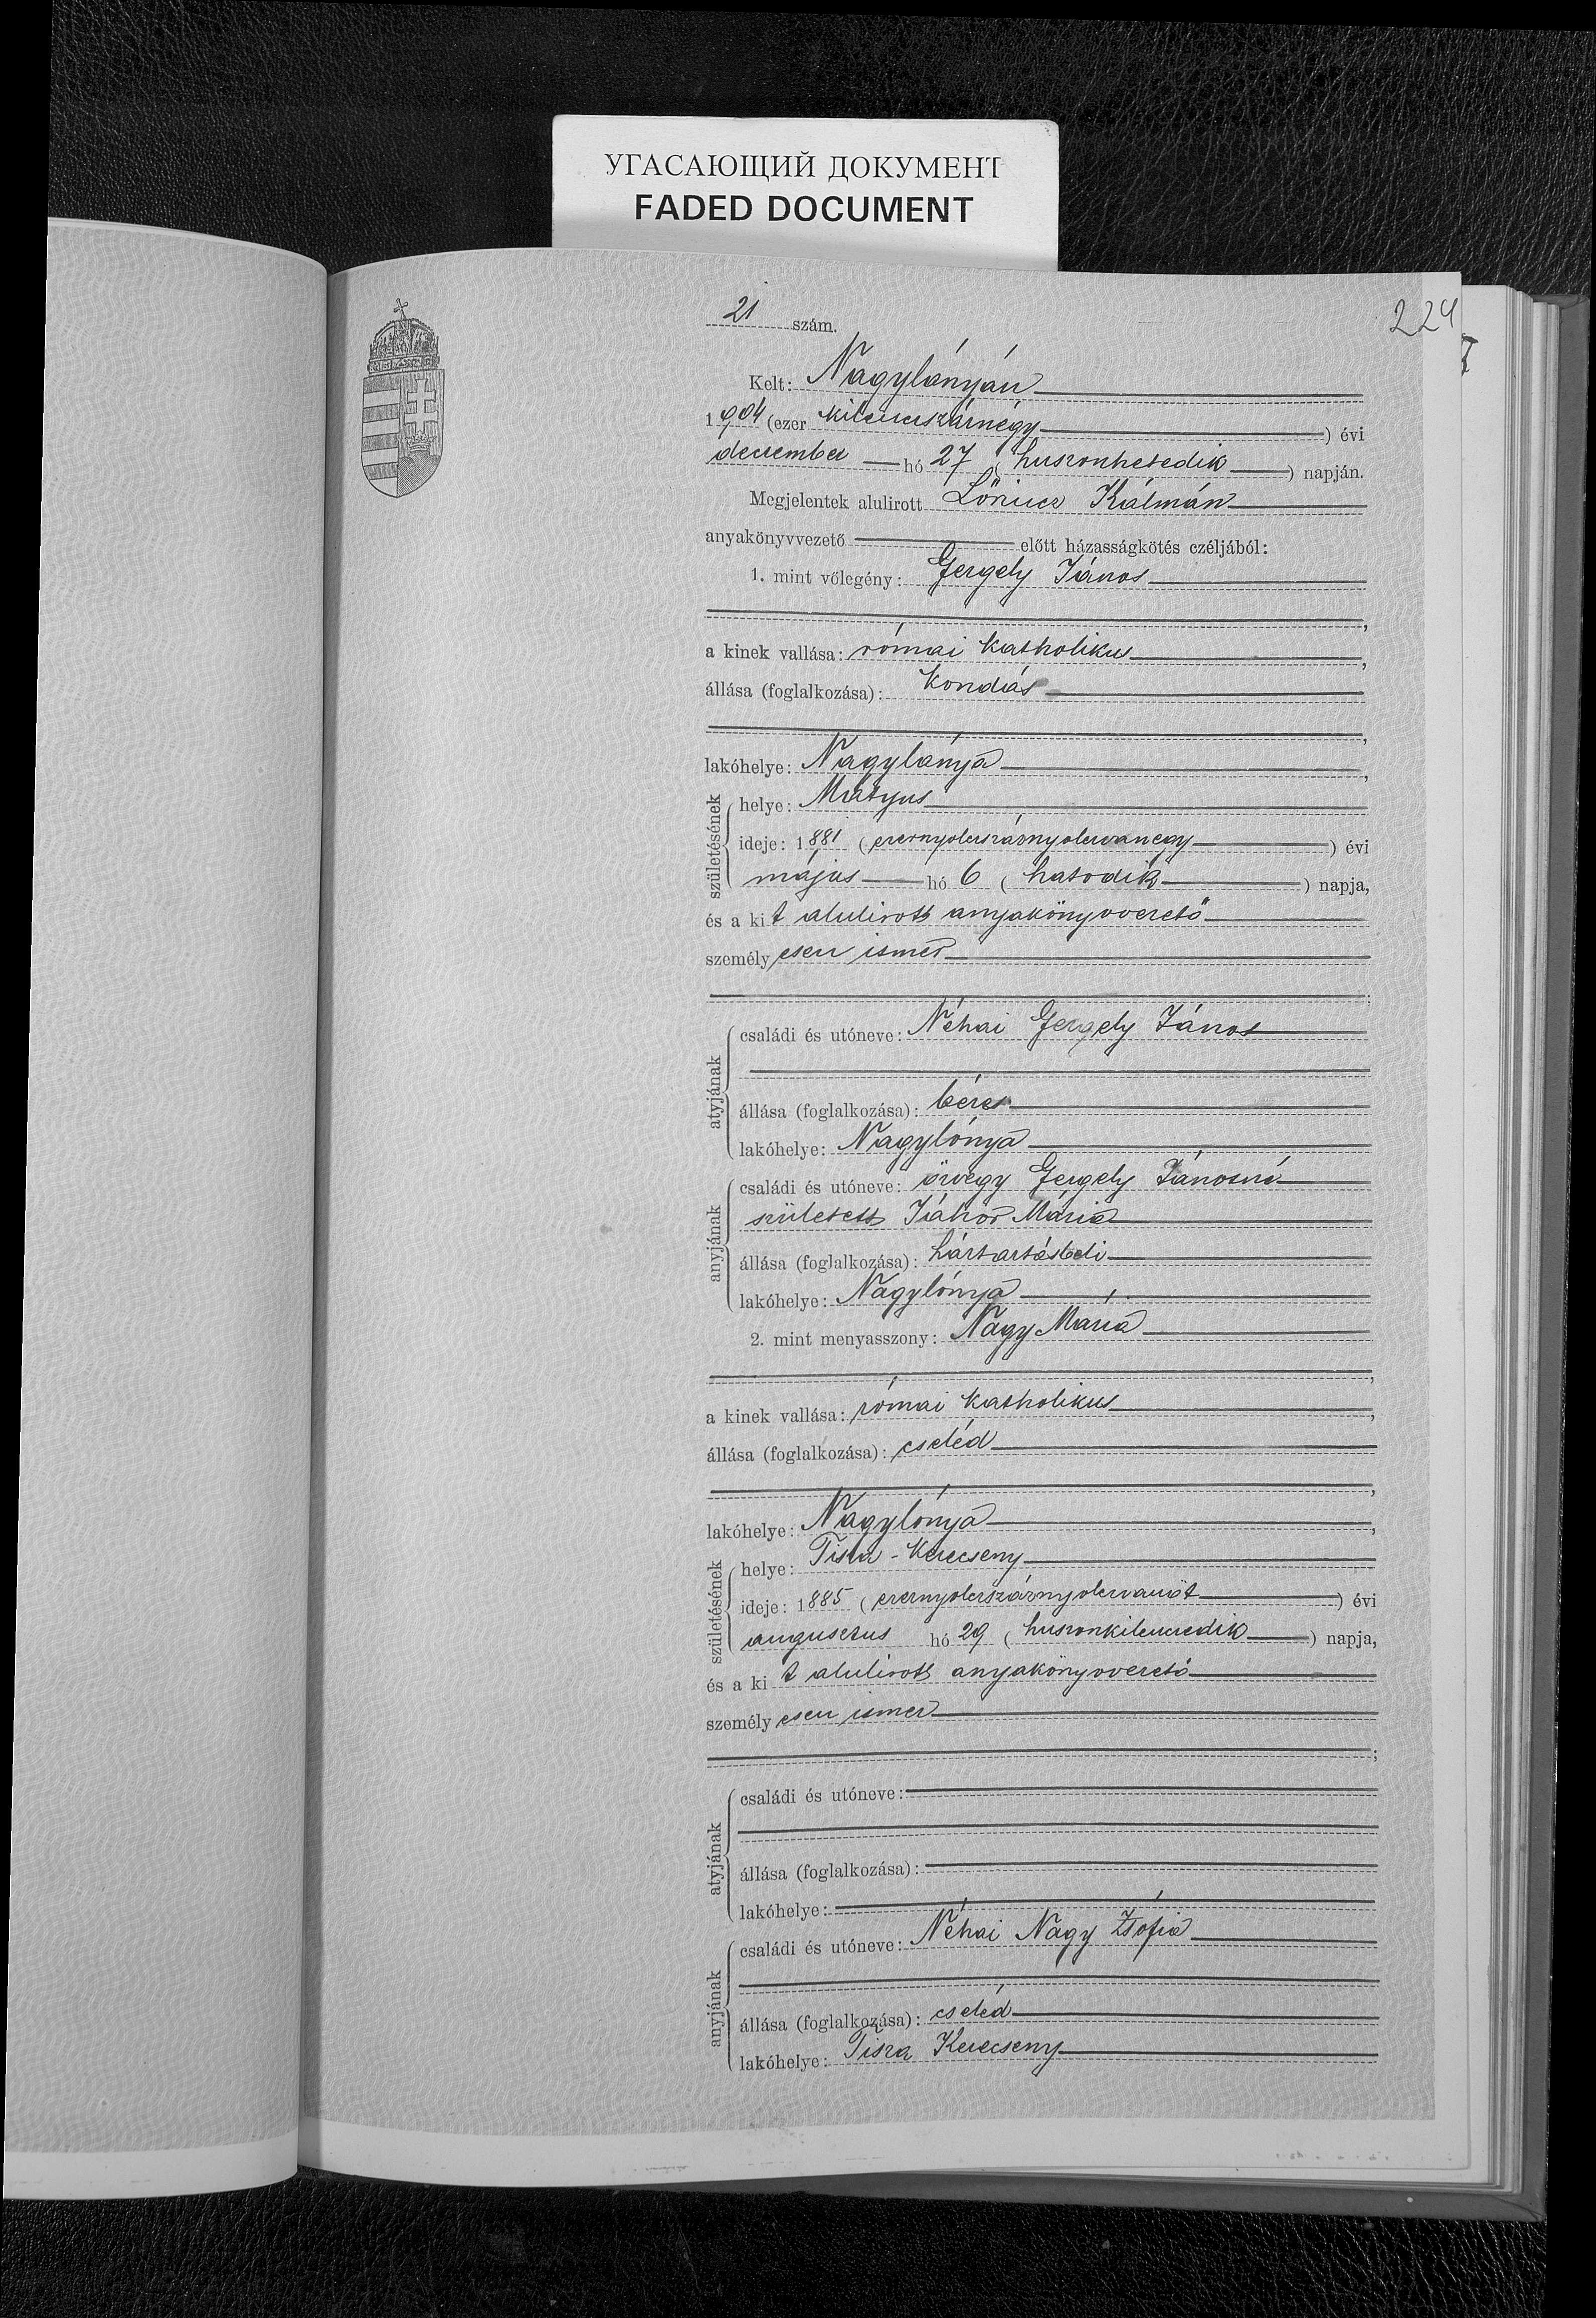 УГАСАЮЩИЙ ДОКУМЕНТ
FADED DOCUMENT
224
21 szám.
Kelt: Nagylónyán
1904 (ezer kilenczszáznégy) évi
deczember hó 27 (huszonhetedik) napján.
Megjelentek alulirott Lőrincz Kálmán
anyakönyvvezető előtt házasságkötés czéljából:
1. mint vőlegény: Gergely János
a kinek vallása: római katholikus,
állása (foglalkozása): kondás
lakóhelye: Nagylónya,
születésének
helye: Mátyus
ideje: 1881 (ezernyolczszáznyolczvanegy) évi
május hó 6 (hatodik) napja,
és a kit alulirott anyakönyvvezető
személyesen ismer
atyjának
családi és utóneve: Néhai Gergely János
állása (foglalkozása): béres
lakóhelye: Nagylónya
anyjának
családi és utóneve: özvegy Gergely Jánosné
született Mária
állása (foglalkozása): háztartásbeli
lakóhelye: Nagylónya
2. mint menyasszony: Nagy Mária
a kinek vallása: római katholikus,
állása (foglalkozása): cseléd
lakóhelye: Nagylónya,
születésének
helye: Tisza-Kerecseny
ideje: 1885 (ezernyolczszáznyolczvanöt) évi
augusztus hó 29 (huszonkilenczedik) napja,
és a kit alulirott anyakönyvvezető
személyesen ismer
atyjának
családi és utóneve:
állása (foglalkozása):
lakóhelye:
anyjának
családi és utóneve: Néhai Nagy Zsófia
állása (foglalkozása): cseléd
lakóhelye: Tisza Kerecseny